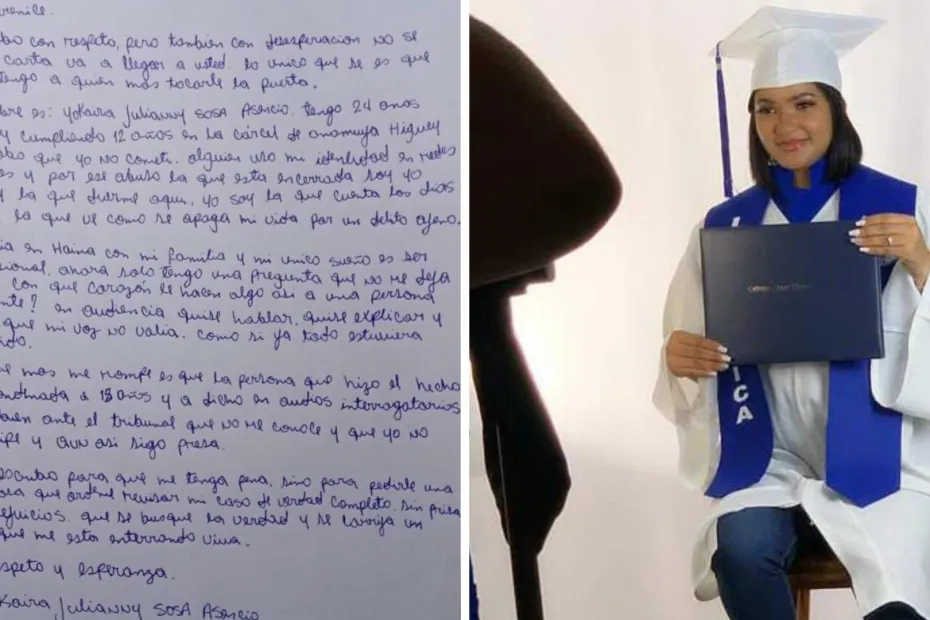 bo con respeto, pero tambien con desesperacion no se
carta va a llegar a usted. lo unico que se es que
tengo a quien mas tocarle la puerta.
bre es: Yokaira Julianny Sosa Asencio. tengo 24 años
y cumpliendo 12 años en la cárcel de anamuya Higuey
que yo no cometi. alguien uso mi identidad en redes
es y por ese abuso la que esta encerrada soy yo
y la que duerme aqui, yo soy la que cuenta los dias
la que ve como se apaga mi vida por un delito ajeno.
ia en Haina con mi familia y mi unico sueño es ser
sional. ahora solo tengo una pregunta que no me deja
con que corazón le hacen algo asi a una persona
nte? en audiencia quise hablar, quise explicar y
que mi voz no valia. como si ya todo estuviera
ido.
e mas me rompe es que la persona que hizo el hecho
ondenada a años y a dicho en audios interrogatorios
bien ante el tribunal que no me conoce y que yo no
ipe y aun asi sigo presa.
escribo para que me tenga pena, sino para pedirle una
ora que ordene revisar mi caso de verdad completo. sin prisa
ejuicios. que se busque la verdad y se corrija un
que me esta enterrando viva.
speto y esperanza.
Kaira Julianny Sosa Asencio
ICA